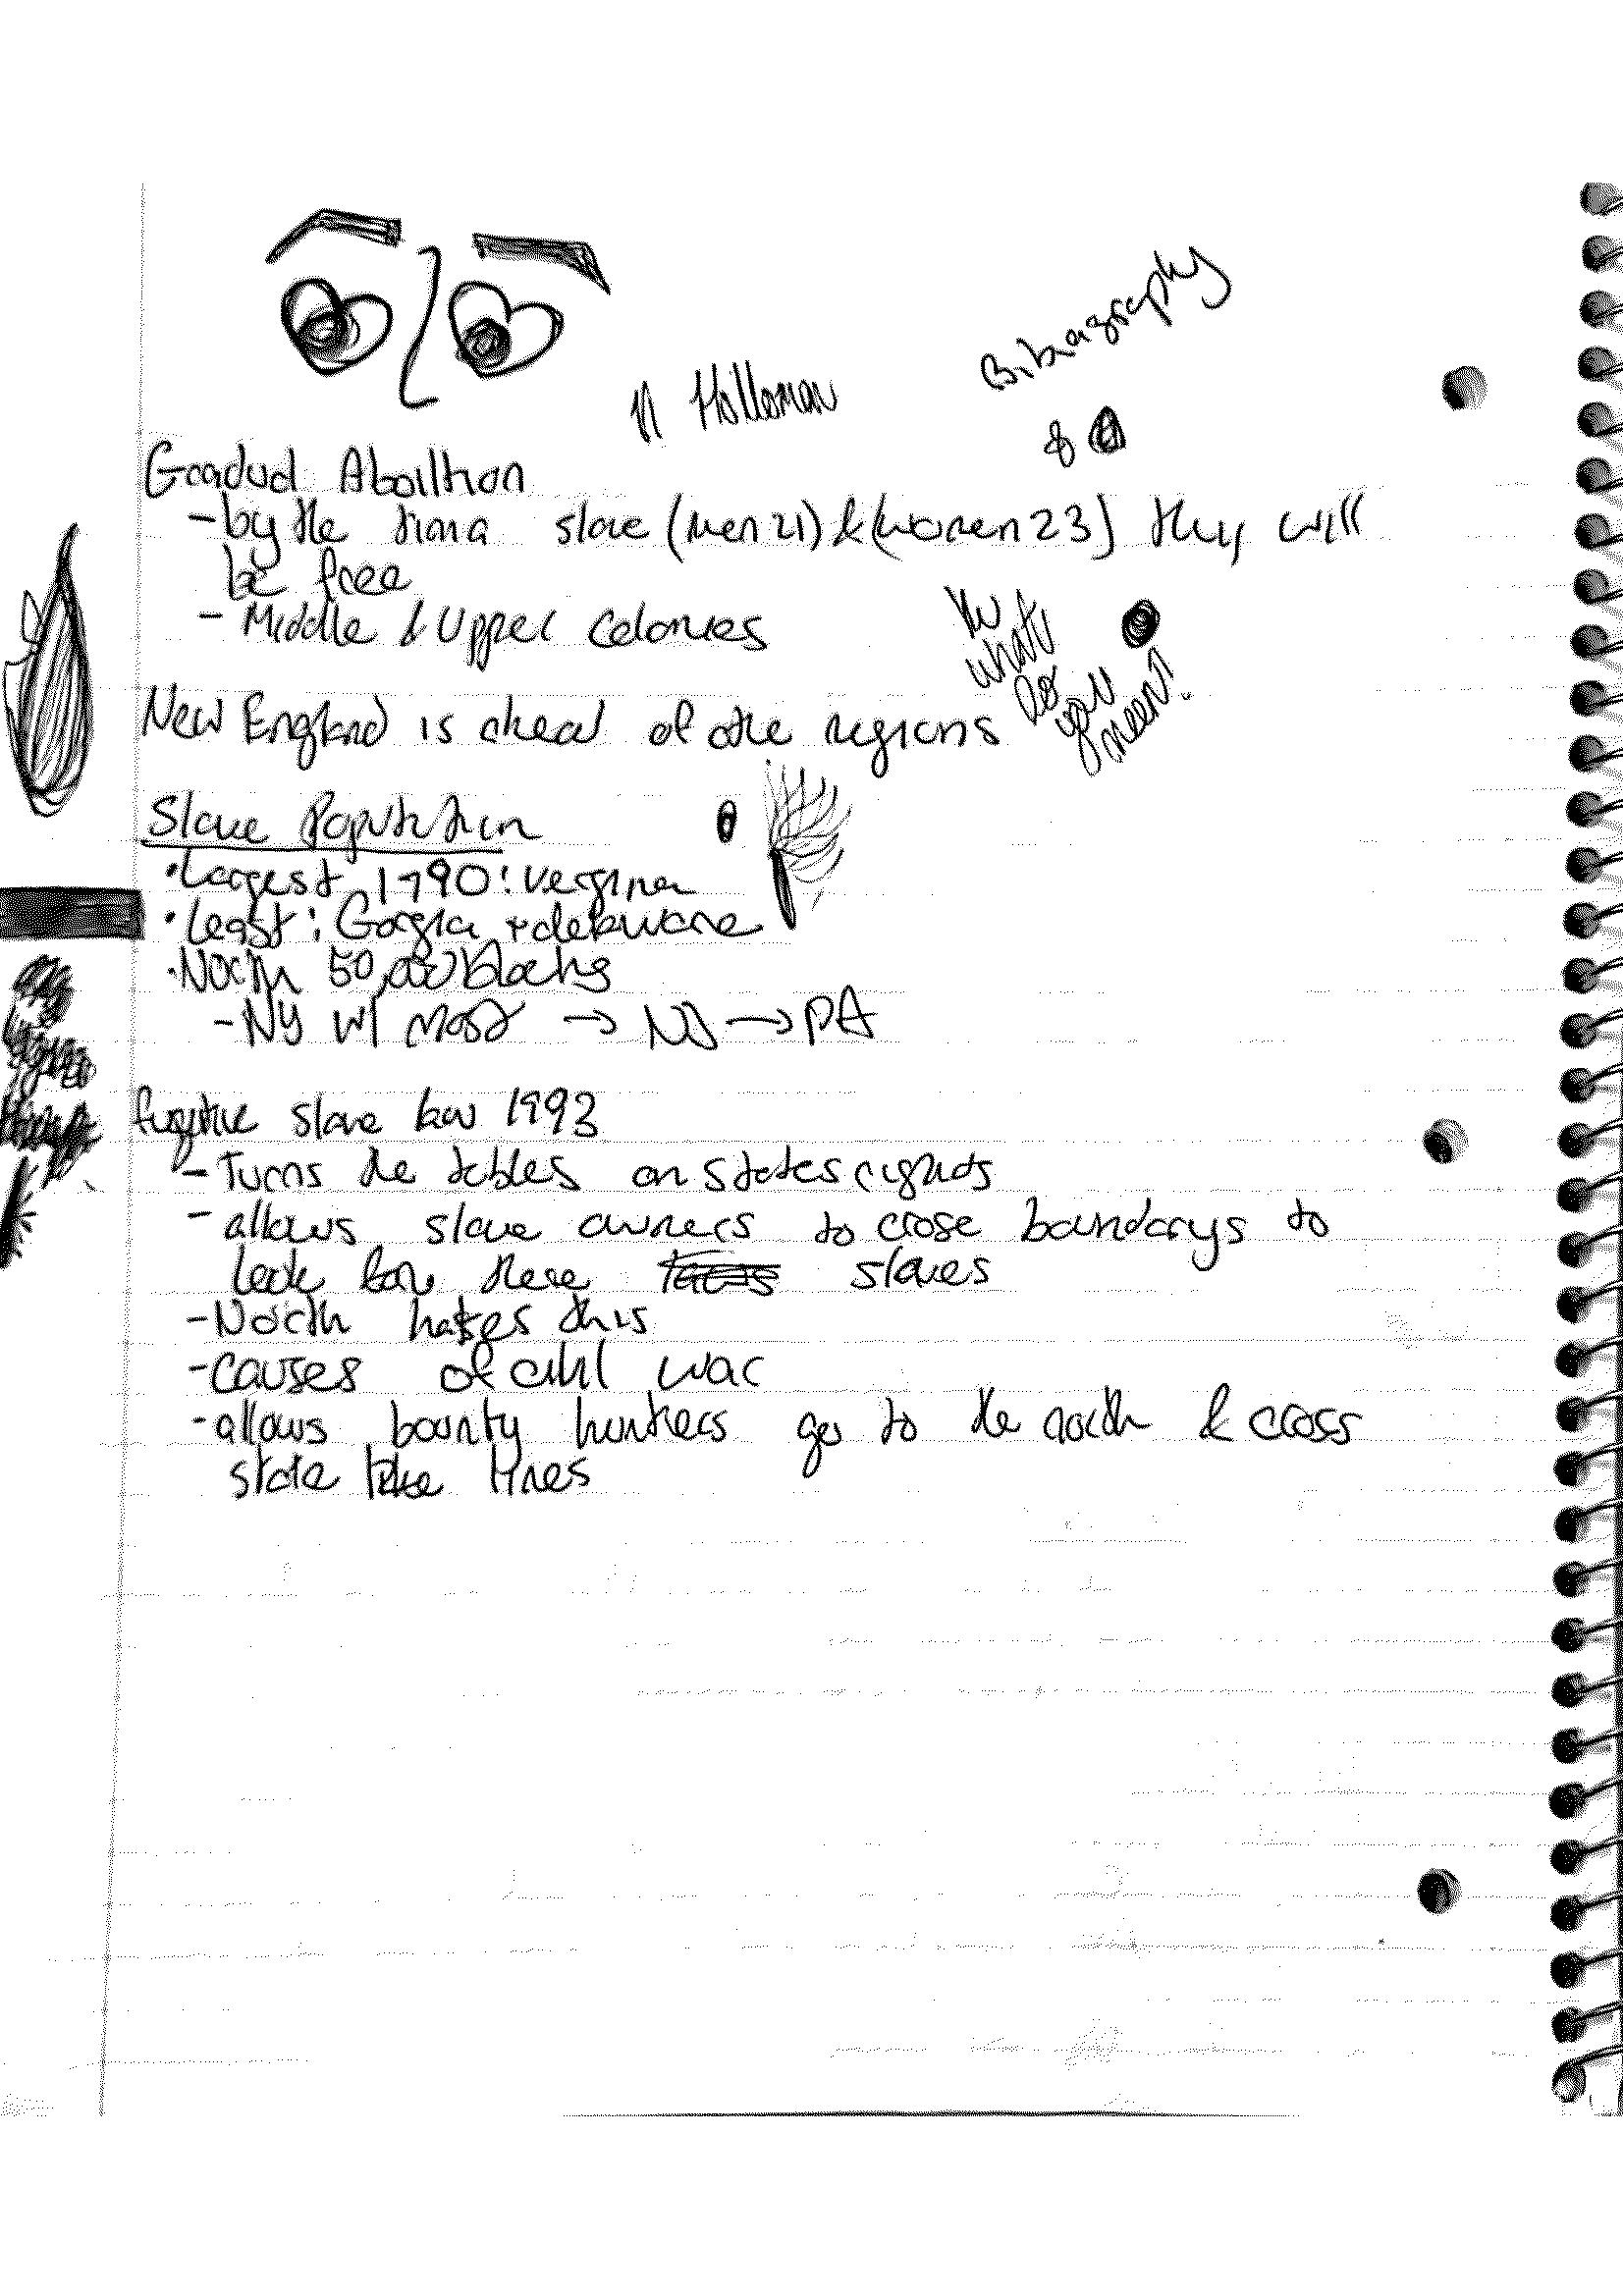 Bibragraphy
N Holloman
&
Gradual Aboiltion
- by the time slave (men 21) & (women 23) they will
be free
- Middle & Upper Colonies
what
do
you
meen?
New England is ahead of othe regions
Slave Population
• Largest 1790: Vergina
• Least: Gorgia + delaware
• North 50,000 blacks
- NY w/ most → NJ → PA
fugitive slave law 1993
- Turns the tables on states rights
- allows slave owners to crose boundarys to
look for there slaves
- North hates this
- causes of civil war
- allows bounty hunters go to the north & cross
state lines